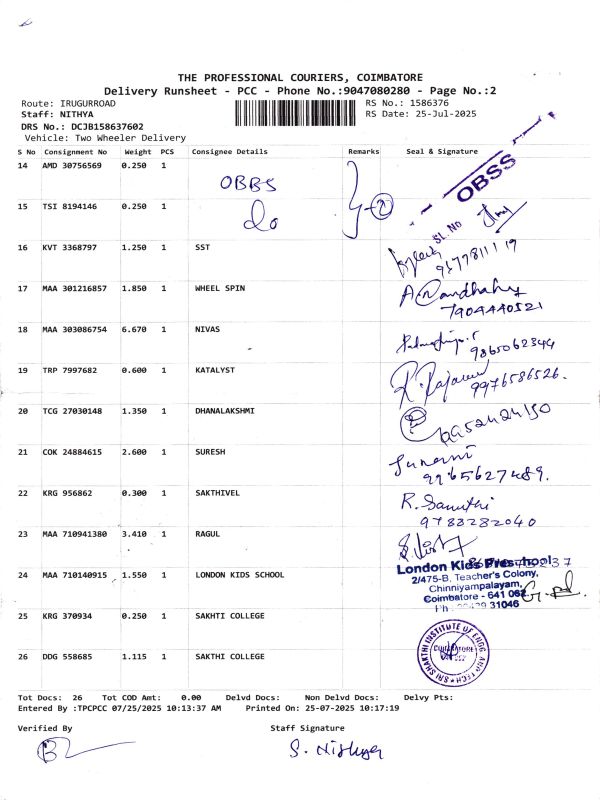 THE PROFESSIONAL COURIERS, COIMBATORE
Delivery Runsheet - PCC - Phone No.:9047080280 - Page No.:2
Route: IRUGURROAD RS No.: 1586376
Staff: NITHYA RS Date: 25-Jul-2025
DRS No.: DCJB158637602
Vehicle: Two Wheeler Delivery
S No Consignment No Weight PCS Consignee Details Remarks Seal & Signature
14 AMD 30756569 0.250 1 OBBS 2 OBSS
15 TSI 8194146 0.250 1 do Sl. No
16 KVT 3368797 1.250 1 SST
17 MAA 301216857 1.850 1 WHEEL SPIN
7904440521
18 MAA 303086754 6.670 1 NIVAS
9865062344
19 TRP 7997682 0.600 1 KATALYST
9976586526.
20 TCG 27030148 1.350 1 DHANALAKSHMI
9952424150
21 COK 24884615 2.600 1 SURESH
9965627489.
22 KRG 956862 0.300 1 SAKTHIVEL
9788282040
23 MAA 710941380 3.410 1 RAGUL
24 MAA 710140915 1.550 1 LONDON KIDS SCHOOL
London Kids Preschool
2/475-B, Teacher's Colony,
Chinniyampalayam,
Coimbatore - 641 062
31046
25 KRG 370934 0.250 1 SAKHTI COLLEGE
26 DDG 558685 1.115 1 SAKTHI COLLEGE
SRI SHAKTHI INSTITUTE OF ENGG AND TECH
COIMBATORE
Tot Docs: 26 Tot COD Amt: 0.00 Delvd Docs: Non Delvd Docs: Delvy Pts:
Entered By :TPCPCC 07/25/2025 10:13:37 AM Printed On: 25-07-2025 10:17:19
Verified By Staff Signature
S. Nithya